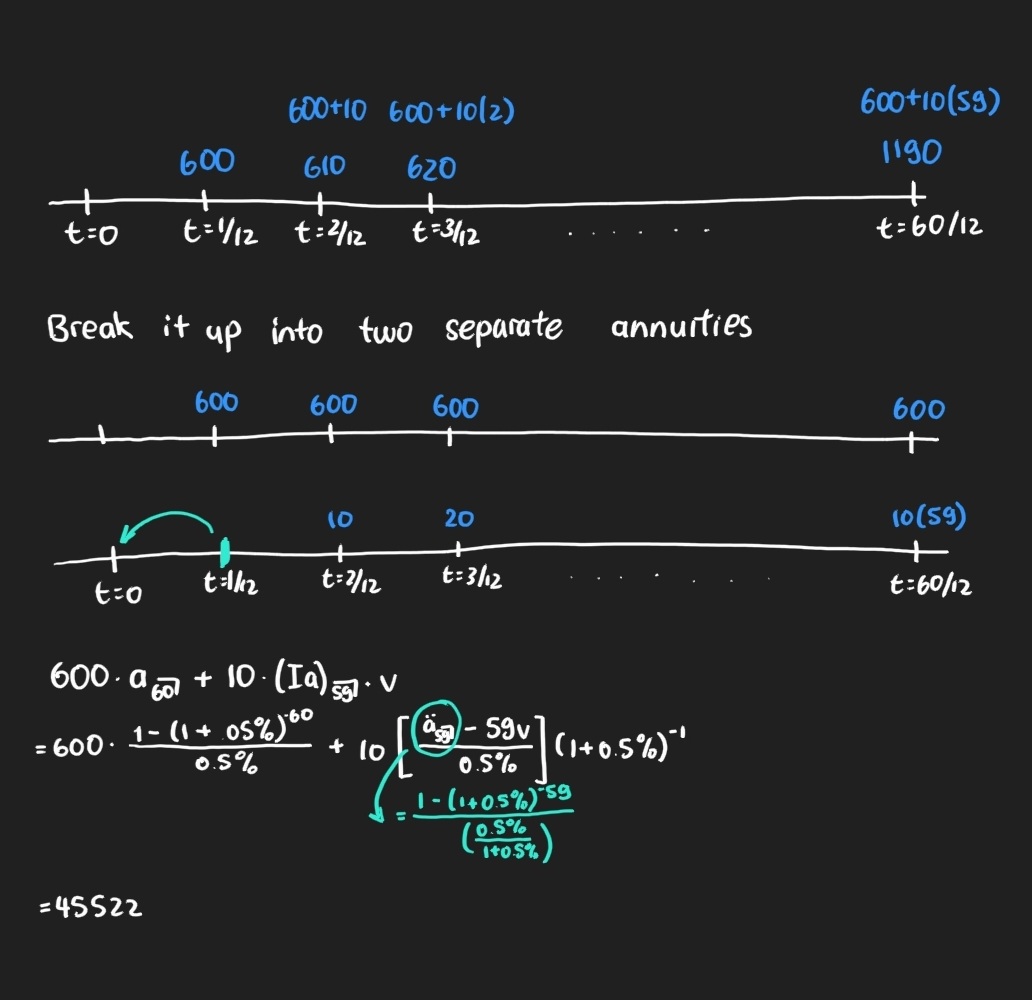 600+10 600+10(2) 600+10(59)
600 610 620 1190
t=0 t=1/12 t=2/12 t=3/12 . . . . . . t=60/12
Break it up into two separate annuities
600 600 600 600
10 20 10(59)
t=0 t=1/12 t=2/12 t=3/12 . . . . . . t=60/12
600·a60̅| + 10·(Ia)59̅|·v
=600· (1-(1+05%)^-60)/(0.5%) + 10[(ä59̅| - 59v)/(0.5%)](1+0.5%)^-1
= (1-(1+0.5%)^-59)/((0.5%)/(1+0.5%))
=45522